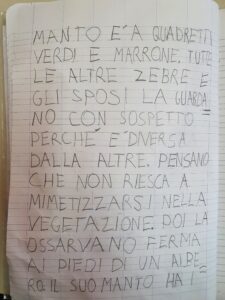 MANTO E' A QUADRETTI
VERDI E MARRONE. TUTTE
LE ALTRE ZEBRE E
GLI SPOSI LA GUARDA
NO CON SOSPETTO
PERCHÉ E' DIVERSA
DALLA ALTRE. PENSANO
CHE NON RIESCA A
MIMETIZZARSI NELLA
VEGETAZIONE. POI LA
OSSARVANO FERMA
AI PIEDI DI UN ALBE=
RO. IL SUO MANTO HA I